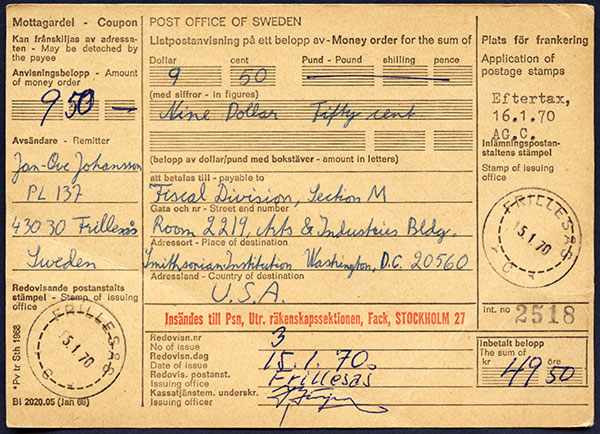 Mottagardel - Coupon
Kan frånskiljas av adressa-
ten - May be detached by
the payee
Anvisningsbelopp - Amount
of money order
9 50 —
Avsändare - Remitter
Jan-Ove Johansson
PL 137
430 30 Frillesås
Sweden
Redovisande postanstalts
stämpel - Stamp of issuing
office
FRILLESÅS
15.1.70
*Pv tr Sth 1968
Bl 2020.05 (Jan 68)
POST OFFICE OF SWEDEN
Listpostanvisning på ett belopp av - Money order for the sum of
Dollar cent Pund - Pound shilling pence
9 50
(med siffror - in figures)
Nine Dollar Fifty cent
(belopp av dollar/pund med bokstäver - amount in letters)
att betalas till - payable to
Fiscal Division, Section M
Gata och nr - Street and number
Room 2217, Arts & Industries Bldg.
Adressort - Place of destination
Smithsonian Institution Washington, D.C. 20560
Adressland - Country of destination
U.S.A.
Insändes till Psn, Utr. räkenskapssektionen, Fack, STOCKHOLM 27
Redovisn.nr
No of issue
3
Redovisn.dag
Date of issue
15.1.70.
Redovis. postanst.
Issuing office
Frillesås
Kassatjänstem. underskr.
Issuing officer
Plats för frankering
Application of
postage stamps
Eftertax,
16.1.70
AG.C.
Inlämningspostan-
staltens stämpel
Stamp of issuing
office
FRILLESÅS
15.1.70
Int. no 2518
Inbetalt belopp
The sum of
kr öre
49 50